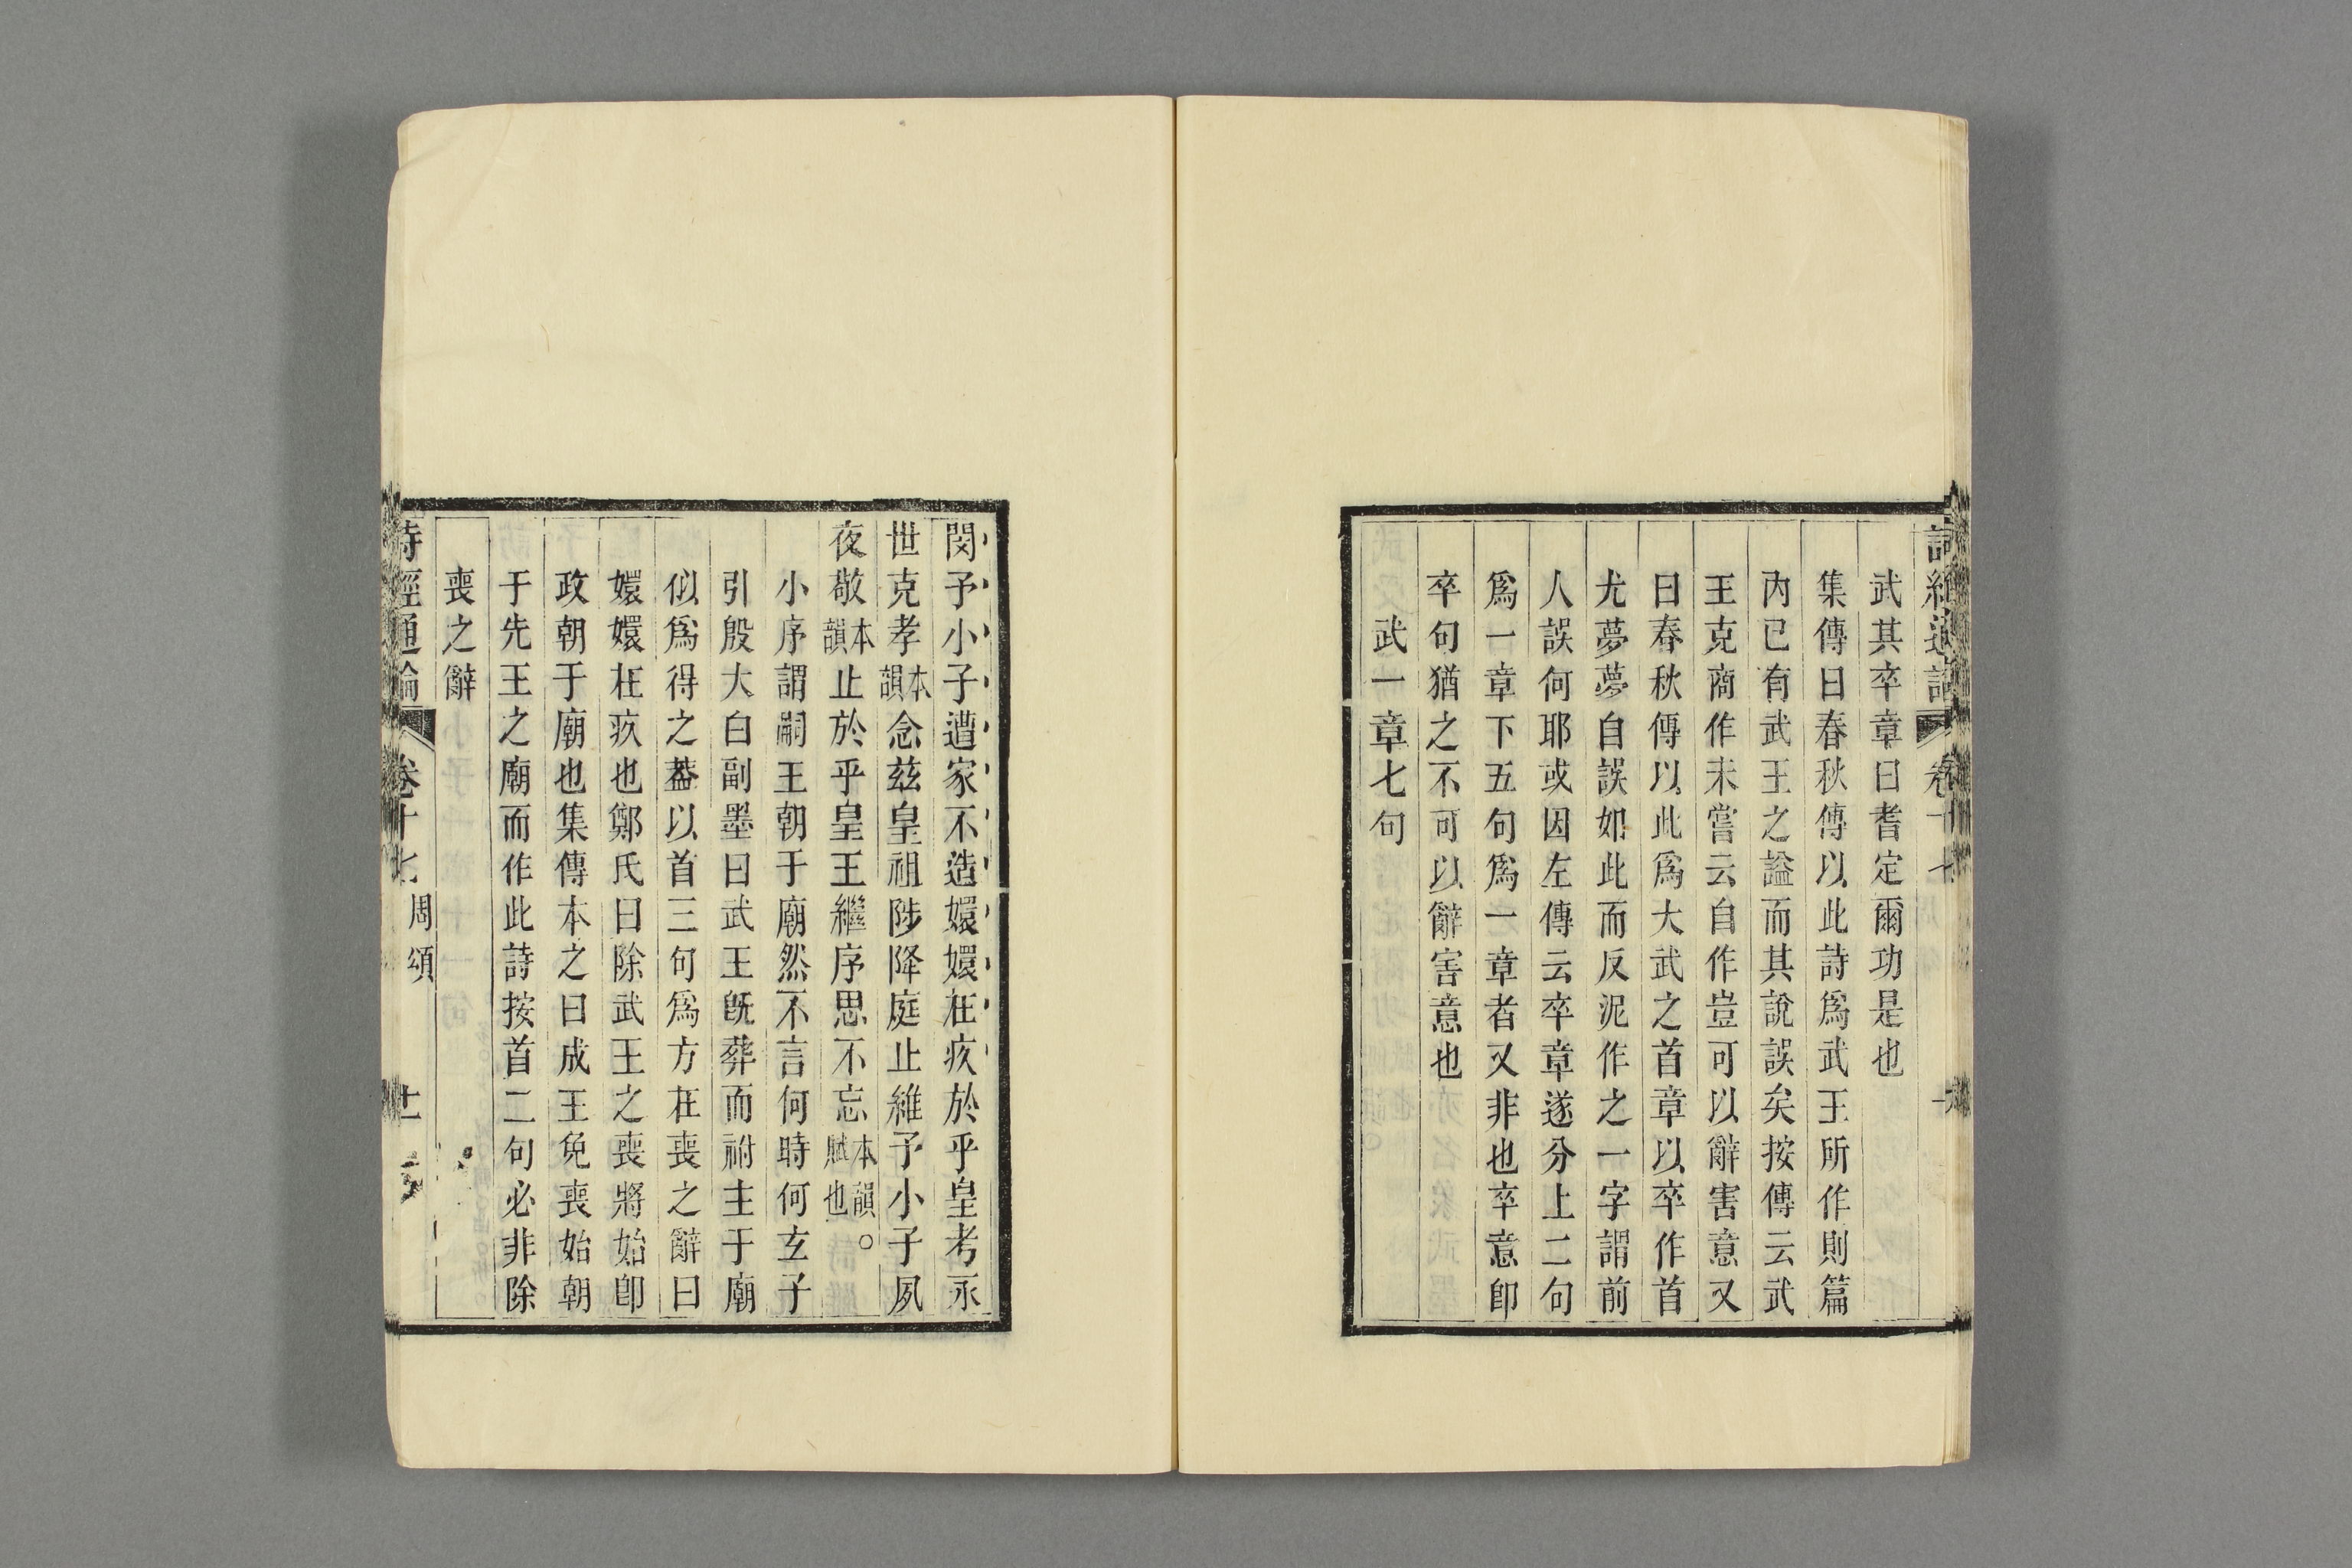 武其卒章曰耆定爾功是也
集傳曰春秋傳以此詩爲武王所作則篇
內已有武王之諡而其說誤矣按傳云武
王克商作未嘗云自作豈可以辭害意又
曰春秋傳以此爲大武之首章以卒作首
尤夢夢自誤如此而反泥作之一字謂前
人誤何耶或因左傳云卒章遂分上二句
爲一章下五句爲一章者又非也卒意卽
卒句猶之不可以辭害意也
武一章七句
閔予小子遭家不造嬛嬛在疚於乎皇考永
世克孝本韻念茲皇祖陟降庭止維予小子夙
夜敬本韻止於乎皇王繼序思不忘本韻賦也○
小序謂嗣王朝于廟然不言何時何玄子
引殷大白副墨曰武王旣葬而祔主于廟
似爲得之蓋以首三句爲方在喪之辭曰
嬛嬛在疚也鄭氏曰除武王之喪將始卽
政朝于廟也集傳本之曰成王免喪始朝
于先王之廟而作此詩按首二句必非除
喪之辭
詩經通論 卷十七 周頌